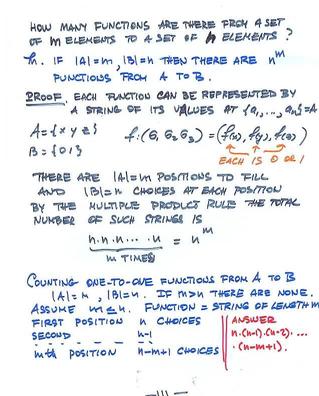 HOW MANY FUNCTIONS ARE THERE FROM A SET
OF m ELEMENTS TO A SET OF n ELEMENTS ?
Th. IF |A|=m, |B|=n THEN THERE ARE n^m
FUNCTIONS FROM A TO B.
PROOF. EACH FUNCTION CAN BE REPRESENTED BY
A STRING OF ITS VALUES AT {a₁,..., aₙ}=A
A={x y z} f:(6, 6₂ 6₃) = (f(x), f(y), f(z))
B={0 1}
EACH IS 0 OR 1
THERE ARE |A|=m POSITIONS TO FILL
AND |B|=n CHOICES AT EACH POSITION
BY THE MULTIPLE PRODUCT RULE THE TOTAL
NUMBER OF SUCH STRINGS IS
n·n·n··· ·n = n^m
m TIMES
COUNTING ONE-TO-ONE FUNCTIONS FROM A TO B
|A|=m, |B|=n. IF m>n THERE ARE NONE.
ASSUME m≤n. FUNCTION = STRING OF LENGTH m
FIRST POSITION n CHOICES
SECOND n-1
mth POSITION n-m+1 CHOICES
ANSWER
n·(n-1)·(n-2)· ···
·(n-m+1).
-111-